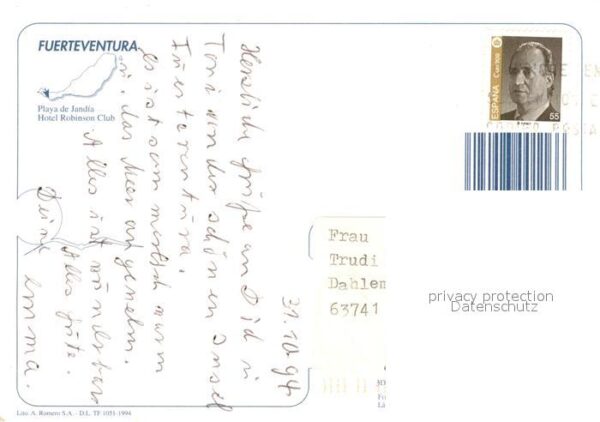 FUERTEVENTURA
Playa de Jandía
Hotel Robinson Club
ESPAÑA
Correos
55
31.10.94
Herzliche Grüße an Dich u
Toni von der schönen Insel
Fuerteventura.
es ist warm
das Meer angenehm.
Alles ist wunderbar
Alles Gute.
Deine
Emma.
Frau
Trudi
Dahlem
63741
privacy protection
Datenschutz
Lito. A. Romero S.A. - D.L. TF 1051-1994